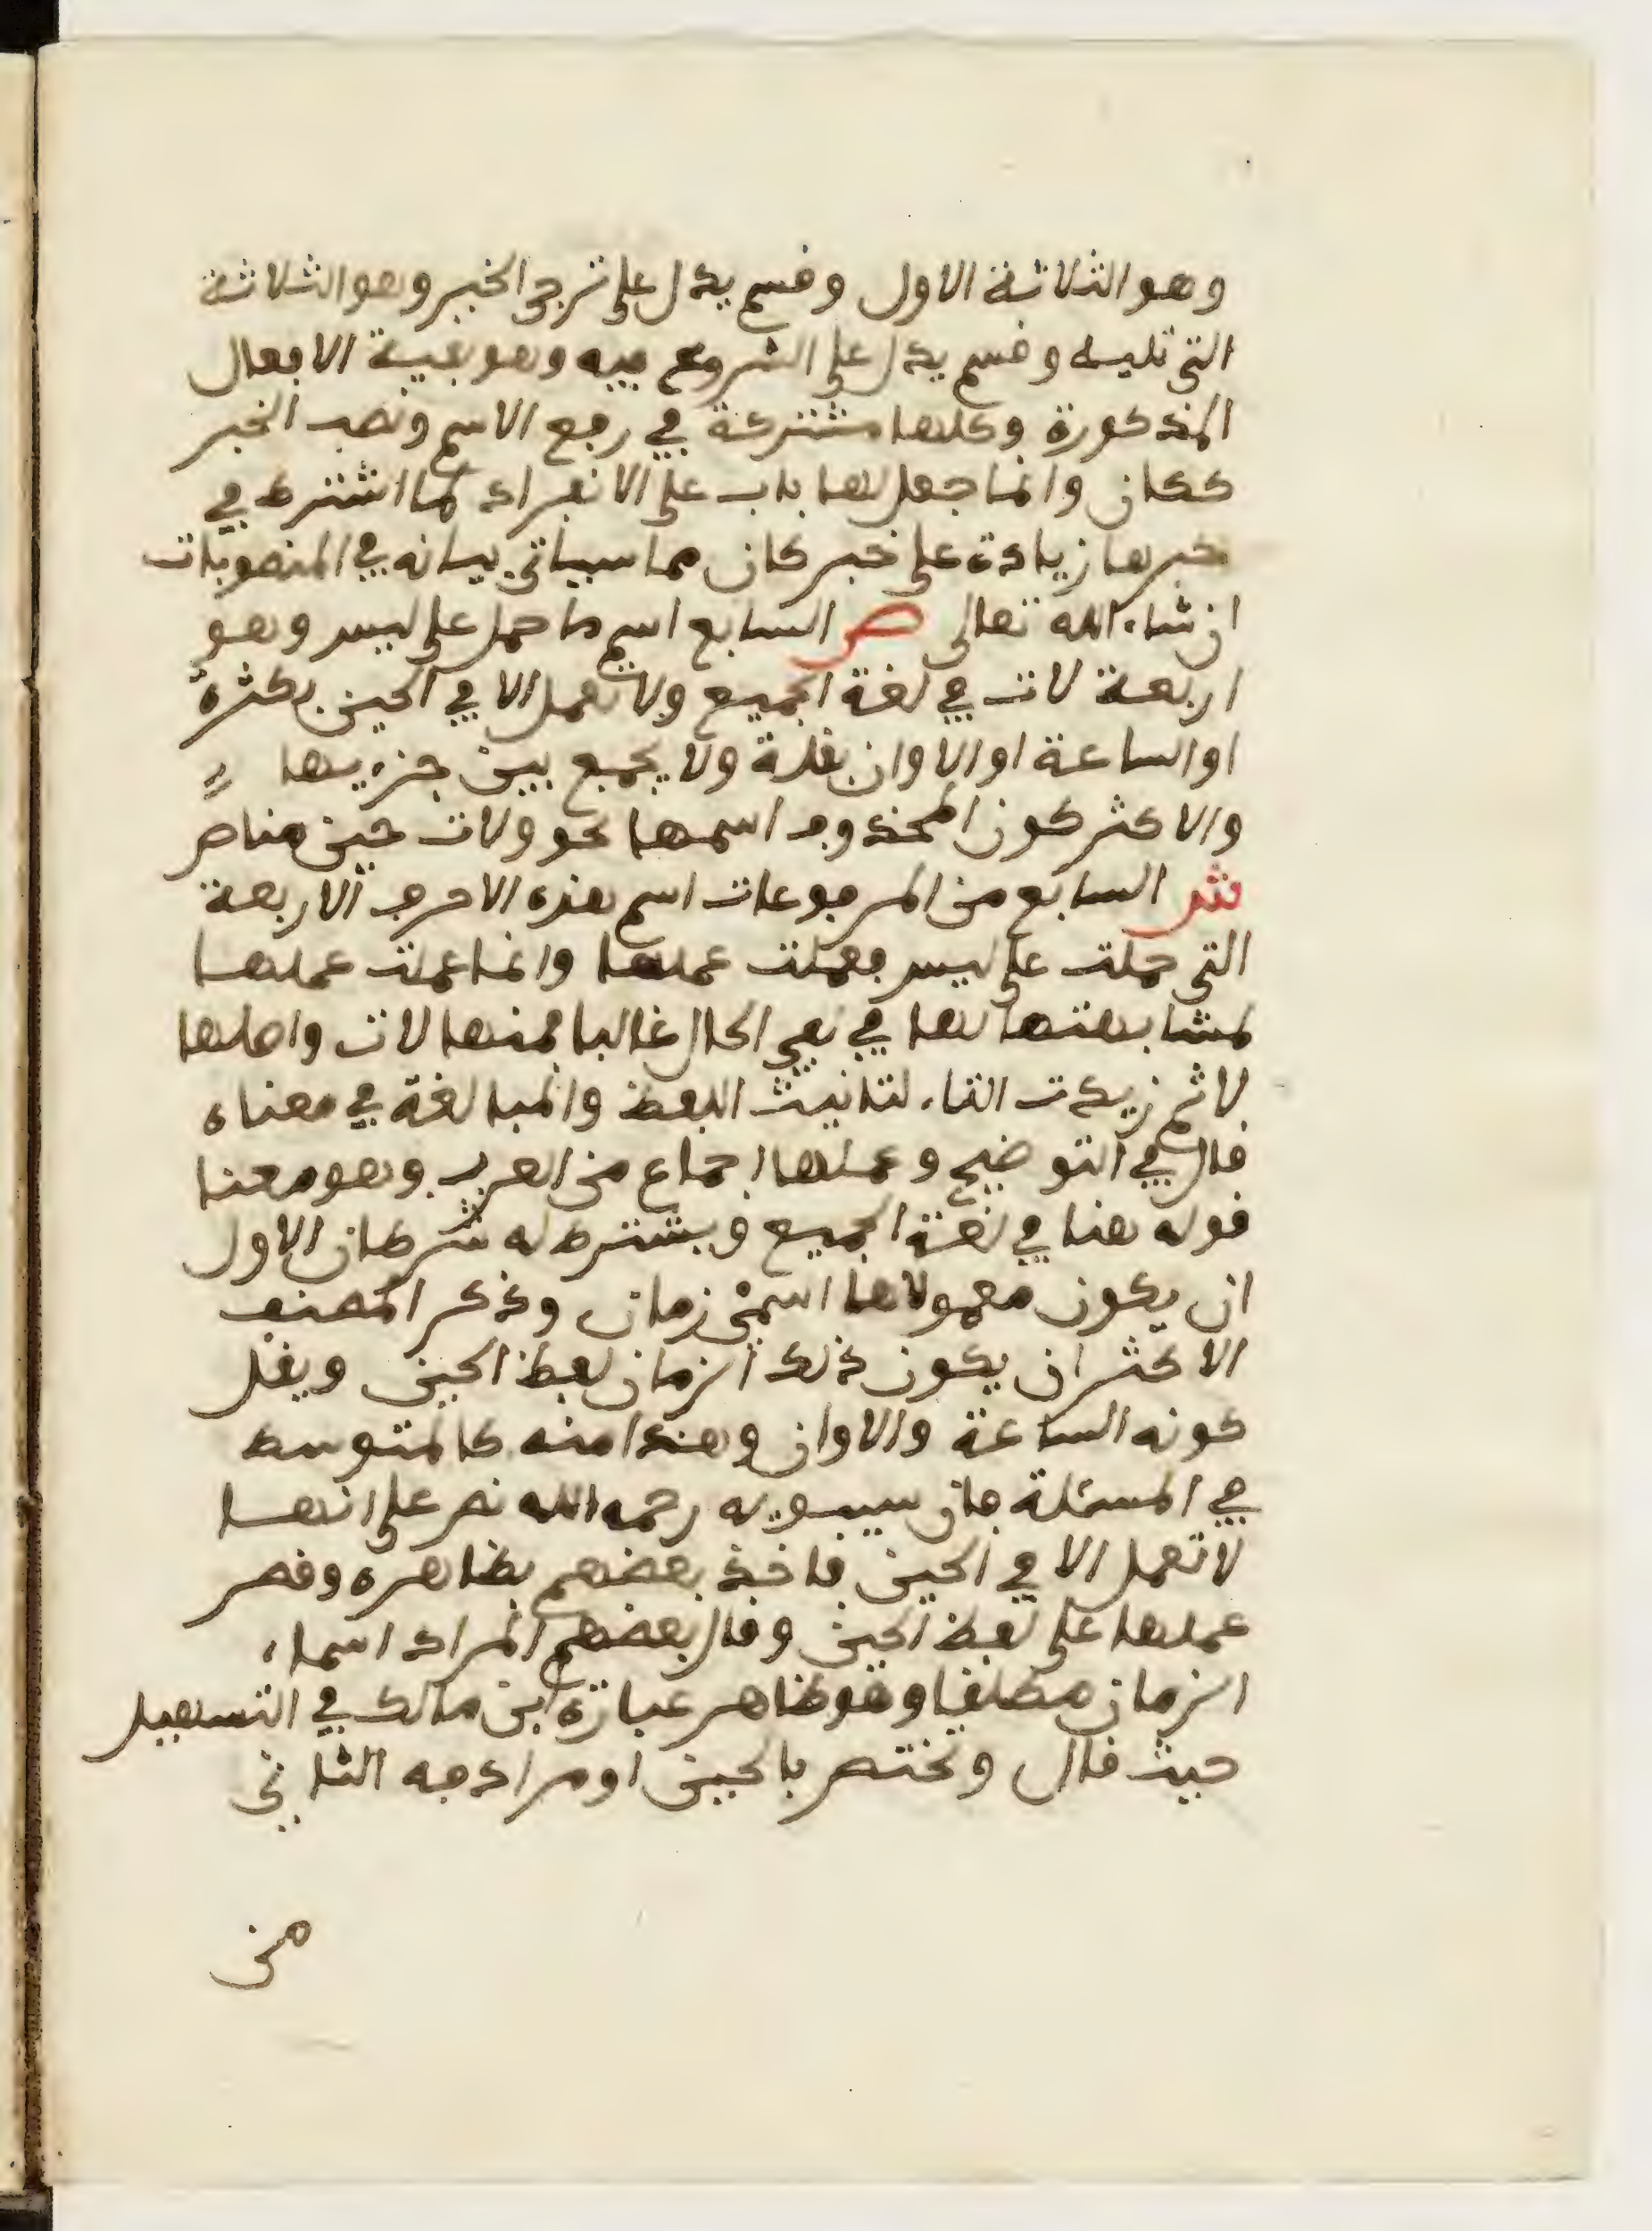 وهو الثلاثة الاول وقسم يدل على ترجى الخبر وهو الثلاثة
التى تليه وقسم يدل على الشروع فيه وهو بقية الافعال
المذكورة وكلها مشتركة في رفع الاسم ونصب الخبر
ككان وانما جعل لها باب على الانفراد لما اشترط في
خبرها زيادة على خبر كان مما سياتى بيانه في المنصوبات
ان شاء الله تعالى ص السابع اسم ما حمل على ليس وهو
اربعة لات في لغة الجميع ولا تعمل الا في الحين بكثرة
او الساعة او الاوان بقلة ولا يجمع بين جزءيها
والاكثر كون المحذوف اسمها نحو ولات حين مناص
ش السابع من المرفوعات اسم هذه الاحرف الاربعة
التى حملت على ليس فعملت عملها وانما عملت عملها
لمشابهتها لها في نفي الحال غالبا فمنها لات واصلها
لا ثم زيدت التاء لتانيث اللفظ والمبالغة في معناه
قال في التوضيح وعملها اجماع من العرب وهو معنا
قوله هنا في لغة الجميع ويشترط له شرطان الاول
ان يكون معمولاها اسمى زمان وذكر المصنف
الاكثر ان يكون ذلك الزمان لفظ الحين ويقل
كونه الساعة والاوان وهذا منه كالمتوسط
في المسئلة فان سيبويه رحمه الله نص على انها
لا تعمل الا في الحين فاخذ بعضهم بظاهره وقصر
عملها على لفظ الحين وقال بعضهم المراد اسماء
الزمان مطلقا وهو ظاهر عبارة ابن مالك في التسهيل
حيث قال وتختص بالحين او مرادفه الثاني
من